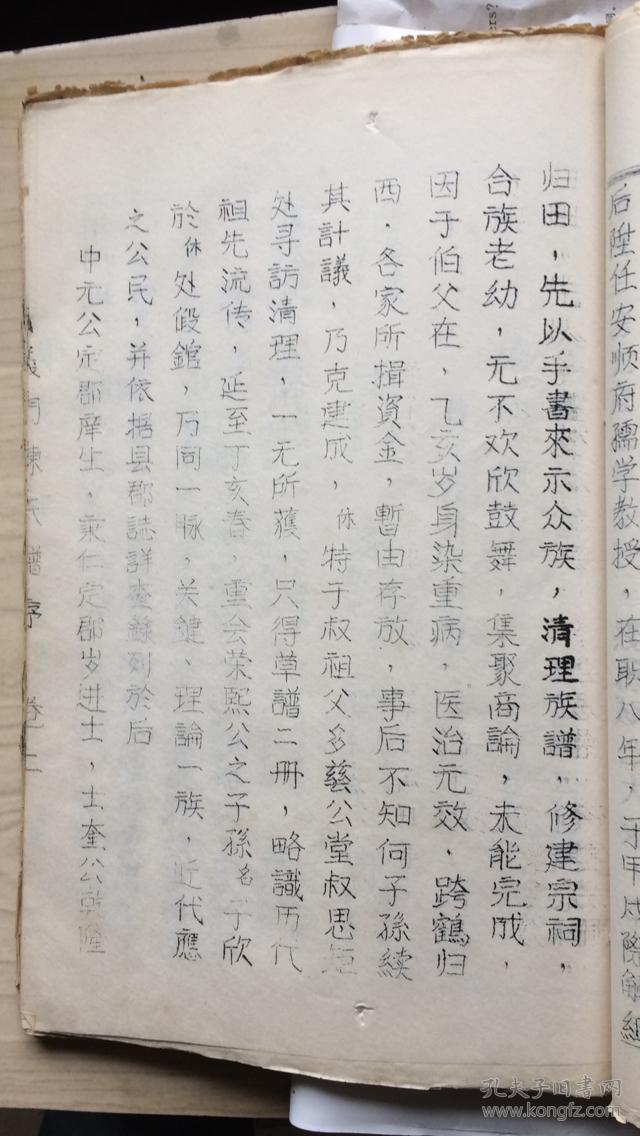 后陞任安顺府孺学教授，在职八年，于甲戌際解組
归田，先以手書來示众族，清理族譜，修建宗祠，
合族老幼，无不欢欣鼓舞，集聚商論，未能完成，
因于伯父在，乙亥岁身染重病，医治无效．跨鶴归
西．各家所揖資金，暫由存放，事后不知何子孫續
其計議，乃克建成，休特于叔祖父多慈公堂叔思矩
处寻訪清理，一无所獲，只得草譜二册，略識历代
祖先流传，延至丁亥春，重会荣熙公之子孫名于欣
於休处假館，乃同一脉，关鍵、理論一族，近代應
之公民，并依据县郡誌詳查錄列於后
中元公定郡庠生，秉仁定郡岁进士，士奎公乾隆
義門陳氏譜序 卷一
孔夫子旧書网
www.kongfz.com